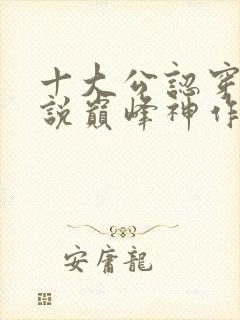 十大公認穿
說巔峰神作
安庸龍